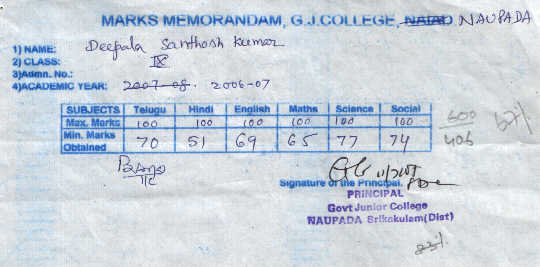 MARKS MEMORANDAM, G.J.COLLEGE, NAUPADA
1) NAME: Deepala Santhosh kumar
2) CLASS: IX
3)Admn. No.:
4)ACADEMIC YEAR: 2007-08. 2006-07
SUBJECTS Telugu Hindi English Maths Science Social
Max. Marks 100 100 100 100 100 100
Min. Marks Obtained 70 51 69 65 77 74
600
406
67%
Signature of the Principal.
PRINCIPAL
Govt Junior College
NAUPADA Srikakulam(Dist)